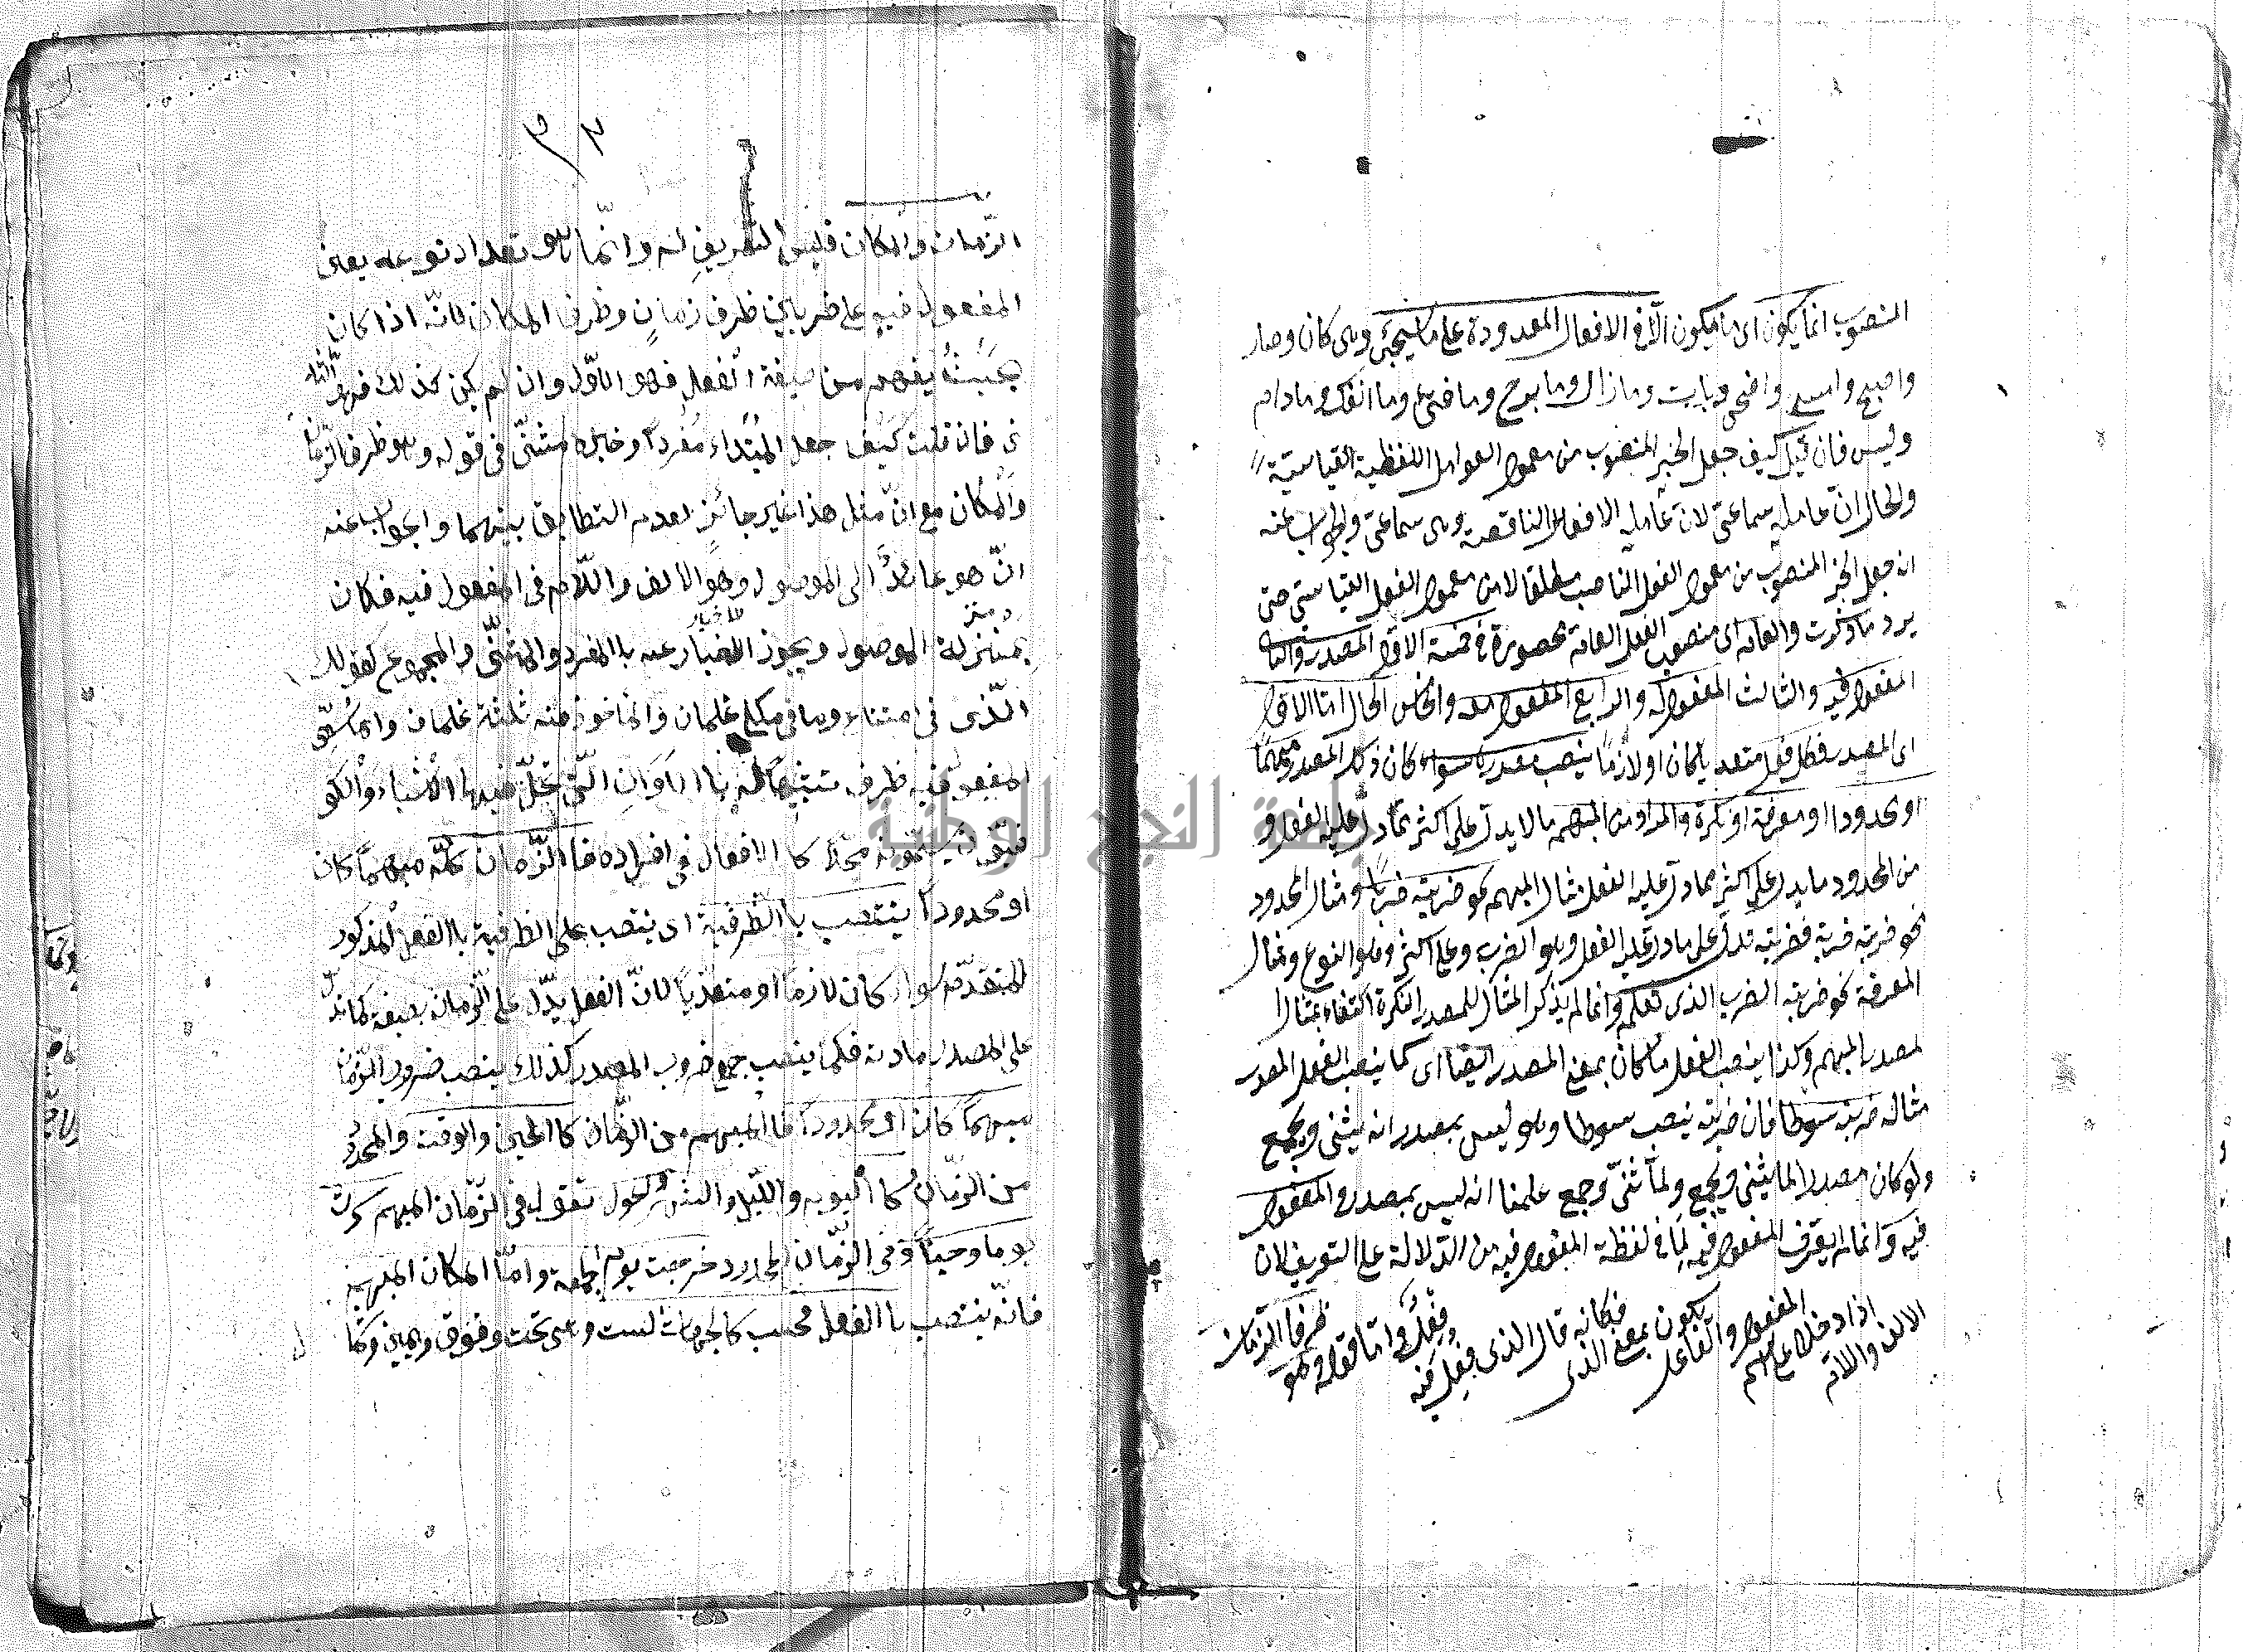 المنصوب انما يكون اى ما يكون الا فى الافعال المعدودة على ما سيجئ وهى كان وصار
واصبح وامسى واضحى وبات وما زال وما برح وما فتئ وما انفك وما دام
وليس فان قيل كيف جعل الخبر المنصوب من معمول العوامل اللفظية القياسية
والحال ان عامله سماعى لان عامله الافعال الناقصة وهى سماعى والجواب عنه
انه جعل الخبر المنصوب من معمول الفعل الناصب مطلقا لا من معمول الفعل القياسى حتى
يرد ما ذكرت والعامة اى منصوب الفعل العامة محصورة فى خمسة الاول المصدر والثانى
المفعول فيه والثالث المفعول له والرابع المفعول معه والخامس الحال اما الاول
اى المصدر فكل فعل متعديا كان او لازما ينصب مصدره سواء كان ذلك المصدر مبهما
او محدودا او معرفة او نكرة والمراد من المبهم ما لا يدل على اكثر مما دل عليه الفعل و
من المحدود ما يدل على اكثر مما دل عليه الفعل مثال المبهم نحو ضربته ضربا ومثال المحدود
نحو ضربته ضربة فضربته تدل على ما دل عليه الفعل وهو الضرب وعلى اكثر وهو النوع ومثال
المعرفة نحو ضربته الضرب الذى تعلم وانما لم يذكر المثال للمصدر النكرة اكتفاء بمثال
مصدر المبهم وكذا ينصب الفعل ما كان بمعنى المصدر ايضا اى كما ينصب الفعل المصدر
مثاله ضربته سوطا فان ضربته ينصب سوطا وهو ليس بمصدر انه يثنى ويجمع
ولو كان مصدرا لما يثنى ويجمع ولما ثنى وجمع علمنا انه ليس بمصدر والمفعول
فيه وانما لم يعرف المفعول فيه لما فى لفظة المفعول فيه من الدلالة على التعريف لان
الالف واللام اذا دخلا على اسم المفعول والفاعل يكون بمعنى الذى فكانه قال الذى فعل فيه فعل واما قوله وهو ظرفا الزمان
٣٢
الزمان والمكان فليس التعريف له وانما هو تعداد نوعه يعنى
المفعول فيه على ضربين ظرف زمان وظرف المكان لانه اذا كان
بحيث يفهم من صيغة الفعل فهو الاول وان لم يكن كذلك فهو الثا
نى فان قلت كيف جعل المبتداء مفردا وخبره مثنى فى قوله وهو ظرفا الزمان
والمكان مع ان مثل هذا غير جائز لعدم التطابق بينهما والجواب عنه
ان هو عائد الى الموصول وهو الالف واللام فى المفعول فيه فكان
بمنزلة الموصول ويجوز الاخبار عنه باالمفرد والمثنى والمجموع كقولك
الذى فى غلمان والماخوذ منه ثلثة غلمان وانما سمى
المفعول فيه ظرف تشبيها له باالاوانى التى تحل فيها الاشياء والكو
فيون يسمونه محلا
كا الافعال فى افراده فاالزمان كله مبهما كان
او محدودا ينتصب باالظرفية اى ينتصب على الظرفية باالفعل المذكور
المتقدم سواء كان لازما او متعديا لان الفعل يدل على الزمان بصيغة كما يدل
على المصدر مادته فكما ينصب جميع ضروب المصدر كذلك ينصب ضروب الزمان
مبهما كان او محدودا فاالمبهم من الزمان كاالحين والوقت والمحدود
من الزمان كما اليوم والليل والشهر والحول تقول فى الزمان المبهم سرت
يوما وحينا وفى الزمان المحدود خرجت يوم الجمعة واما المكان المبهم
فانه ينتصب باالفعل فحسب كالجهات الست وهى تحت وفوق ويمين وكما